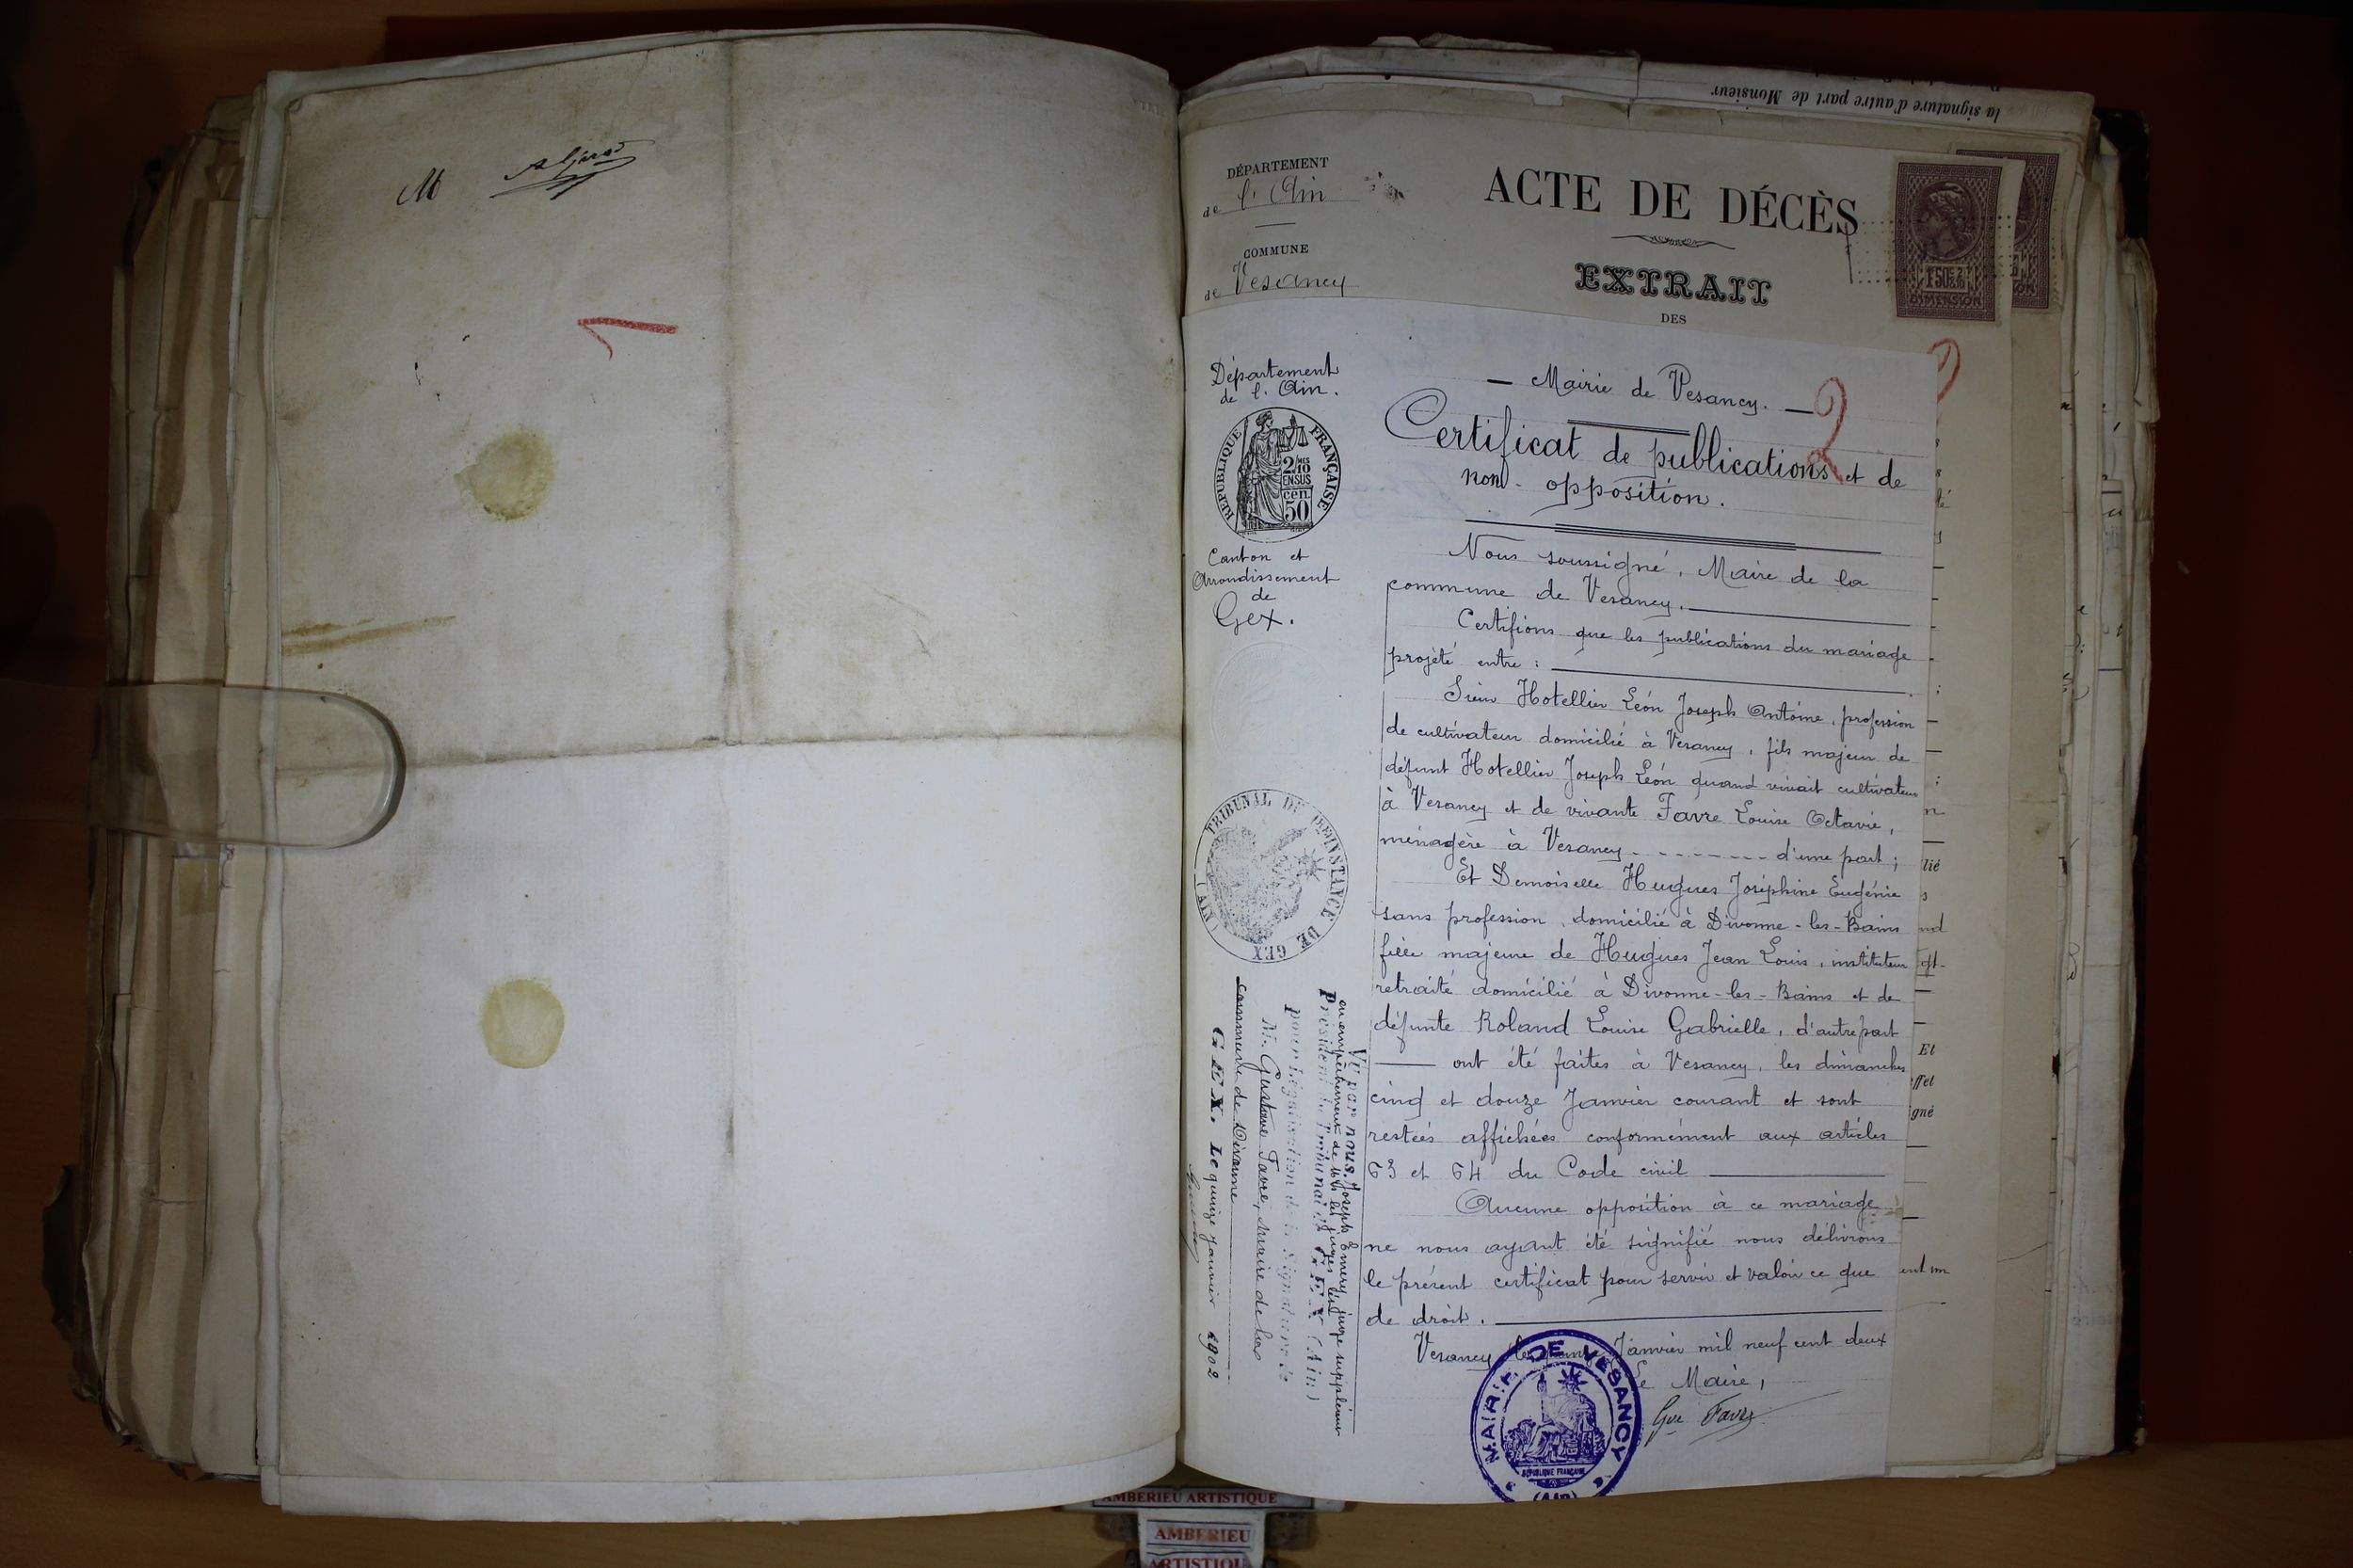 M
la signature d'autre part de Monsieur
DÉPARTEMENT
de l'Ain
COMMUNE
de Vesancy
ACTE DE DÉCÈS
EXTRAIT
DES
1F50
DIMENSION
2
Département
de l'Ain.
RÉPUBLIQUE FRANÇAISE
2/10
EN SUS
cen.
50
Canton et
Arrondissement
de
Gex.
— Mairie de Vesancy. —
Certificat de publications et de
non-opposition.
Nous soussigné, Maire de la
commune de Vesancy.
Certifions que les publications du mariage
projèté entre :
Sieur Hotellier Léon Joseph Antoine, profession
de cultivateur domicilié à Vesancy, fils majeur de
défunt Hotellier Joseph Léon quand vivait cultivateur
à Vesancy et de vivante Favre Louise Octavie,
ménagère à Vesancy - - - - - - - - d'une part ;
Et Demoiselle Hugues Joséphine Eugénie
sans profession, domicilié à Divonne-les-Bains
fille majeure de Hugues Jean Louis, instituteur
retraité domicilié à Divonne-les-Bains et de
défunte Roland Louise Gabrielle, d'autre part
— ont été faites à Vesancy, les dimanches
cinq et douze Janvier courant et sont
restées affichées conformément aux articles
63 et 64 du Code civil
Aucune opposition à ce mariage
ne nous ayant été signifié nous délivrons
le présent certificat pour servir et valoir ce que
de droit.
Vesancy le Janvier mil neuf cent deux
Le Maire,
Gve Favre
MAIRIE DE VESANCY
RÉPUBLIQUE FRANÇAISE
(AIN)
TRIBUNAL DE 1RE INSTANCE DE GEX (AIN)
Vu par nous, Joseph Emery, juge suppléant
en empêchement de MM. les juges les
Président du Tribunal de GEX (Ain)
pour Légalisation de la Signature de
M. Gustave Favre, maire de la
commune de Divonne
GEX, Le quinze janvier 1902
lié
nd
Et
effet
gné
ent un
AMBERIEU ARTISTIQUE
AMBERIEU
ARTISTIQUE